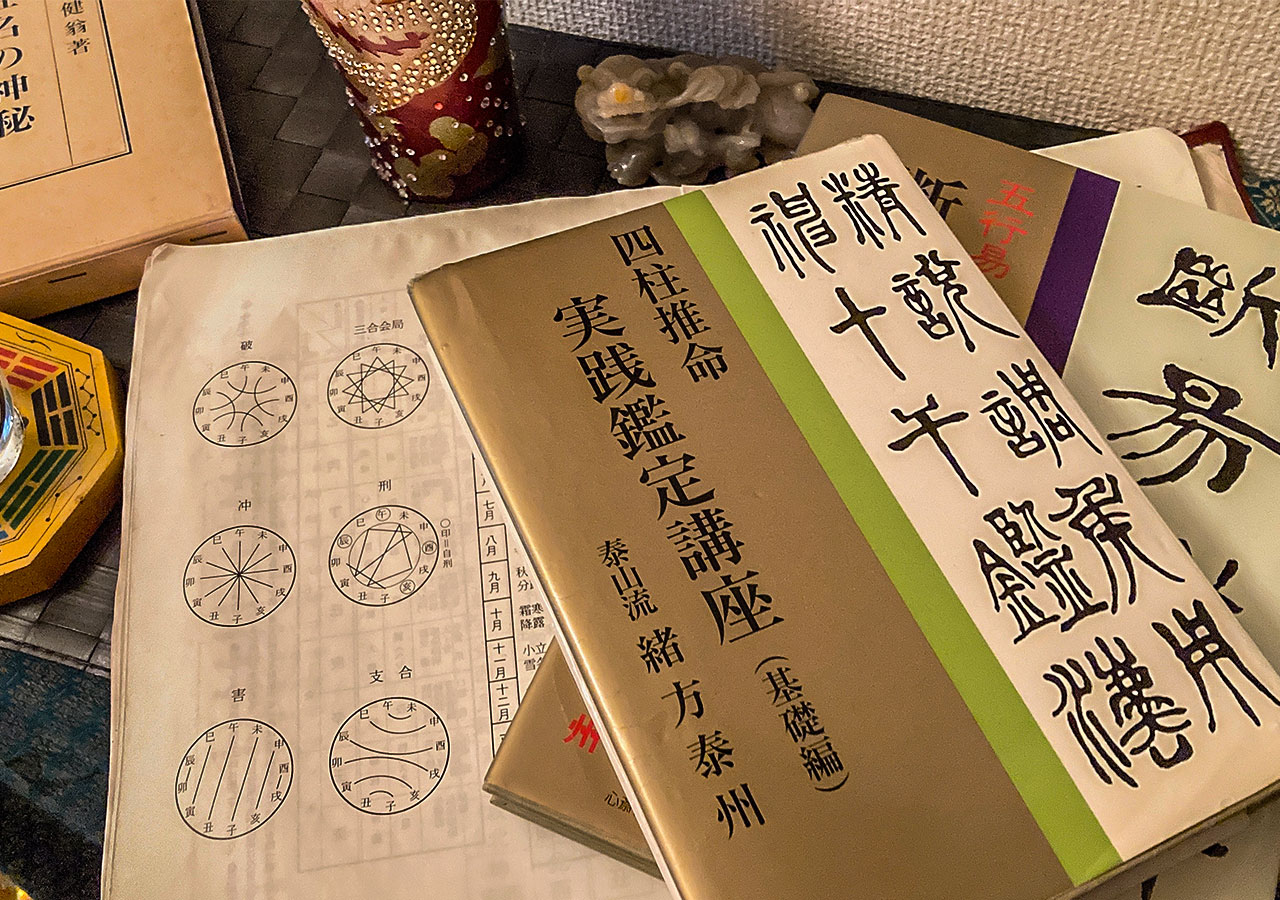 健翁著
名の神秘
破
巳午未申酉戌亥子丑寅卯辰
三合会局
巳午未申酉戌亥子丑寅卯辰
冲
巳午未申酉戌亥子丑寅卯辰
刑
巳午未申酉戌亥子丑寅卯辰
〇印=自刑
害
巳午未申酉戌亥子丑寅卯辰
支合
巳午未申酉戌亥子丑寅卯辰
七月
八月
九月
秋分
十月
寒露
霜降
十一月
立
小雪
十二月
四柱推命
実践鑑定講座(基礎編)
泰山流 緒方泰州
精説調候用
神十
五行易
断
断易